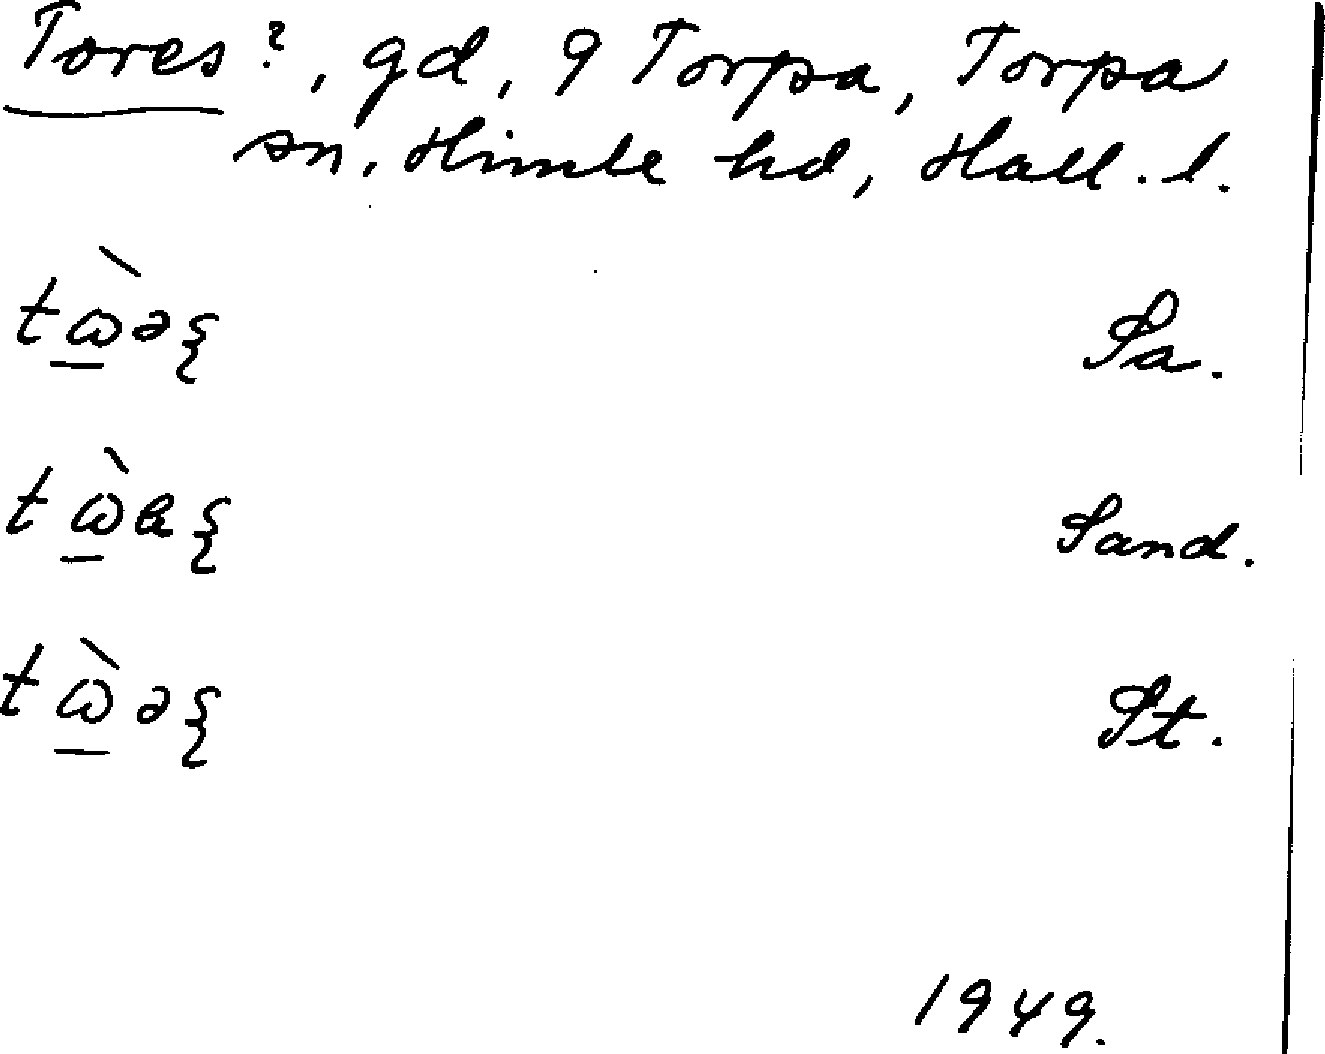 Tores?, gd, 9 Torpa, Torpa
sn, Himle hd, Hall. l.
Sa.
Sand.
St.
1949.